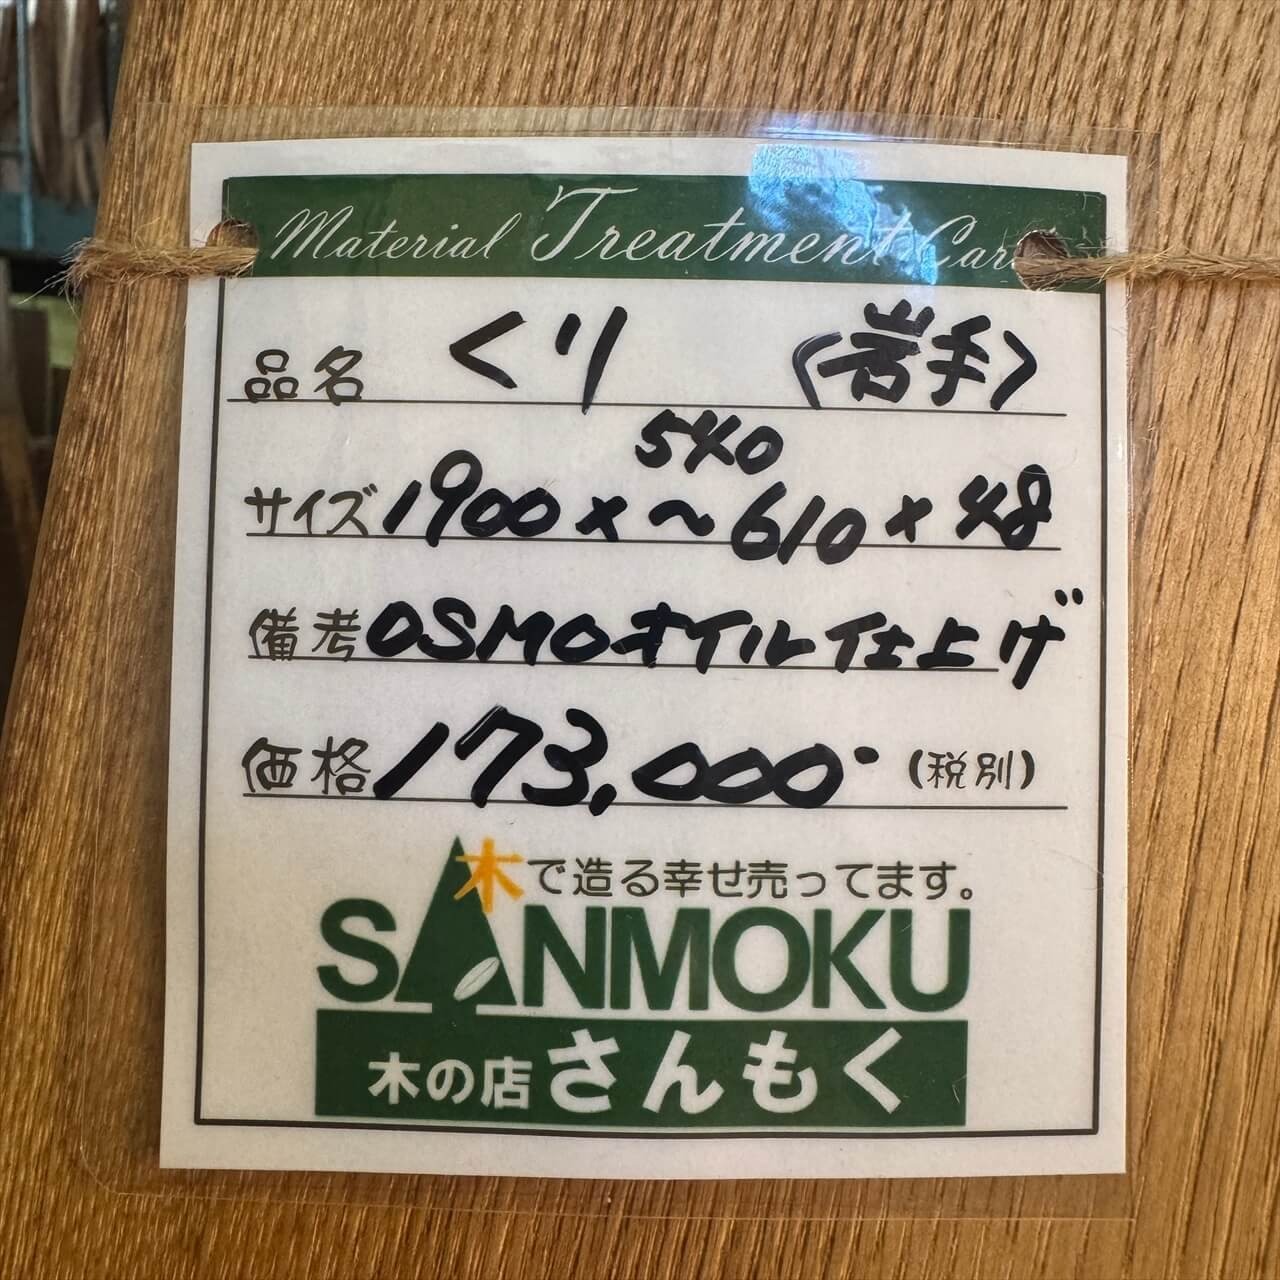 Material Treatment Care
品名 くり (岩手)
540
サイズ 1900×~610×48
備考 OSMOオイル仕上げ
価格 173,000- (税別)
木で造る幸せ売ってます。
SANMOKU
木の店さんもく